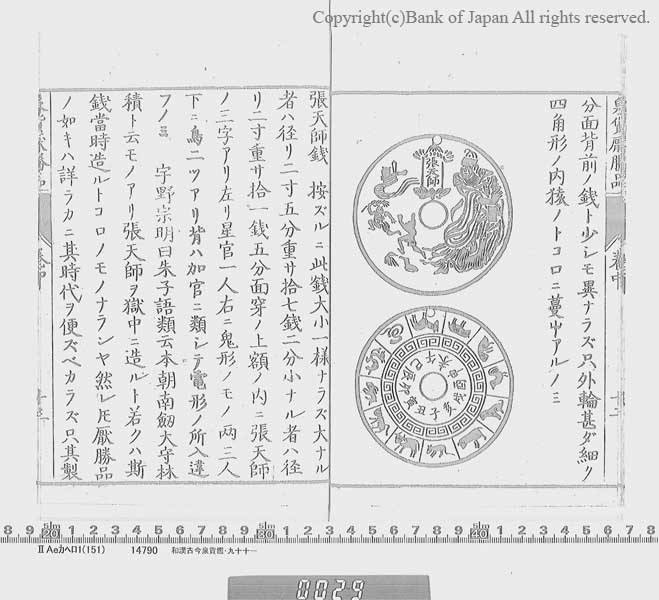 Copyright(c)Bank of Japan All rights reserved.
分面背前ノ銭ト少シモ異ナラズ只外輪甚ダ細ク
四角形ノ内猿ノトコロニ蔓艸アルノミ
張天師
子丑寅卯辰巳午未申酉戌亥
張天師銭 按ズルニ此銭大小一様ナラズ大ナル
者ハ径リ二寸五分重サ拾七銭二分小ナル者ハ径
リ二寸重サ拾一銭五分面穿ノ上額ノ内ニ張天師
ノ三字アリ左リ星官一人右ニ鬼形ノモノ両三人
下ニ鳥二ツアリ背ハ加官ニ類シテ電形ノ所入違
フノミ 宇野宗明曰朱子語類云本朝南劔太守林
積ト云モノアリ張天師ヲ獄中ニ造ルト若クハ斯
銭當時造ルトコロノモノナランヤ然レ𪜈厭勝品
ノ如キハ詳ラカニ其時代ヲ便ズベカラズ只其製
8 9 5lm 20 1 2 3 4 5 6 7 8 9 5lm 30 1 2 3 4 5 6 7 8 9 5lm 40 1 2 3 4 5 6 7 8
II Aeカヘロ1(151) 14790 和漢古今泉貨鑑・九十十一
0029